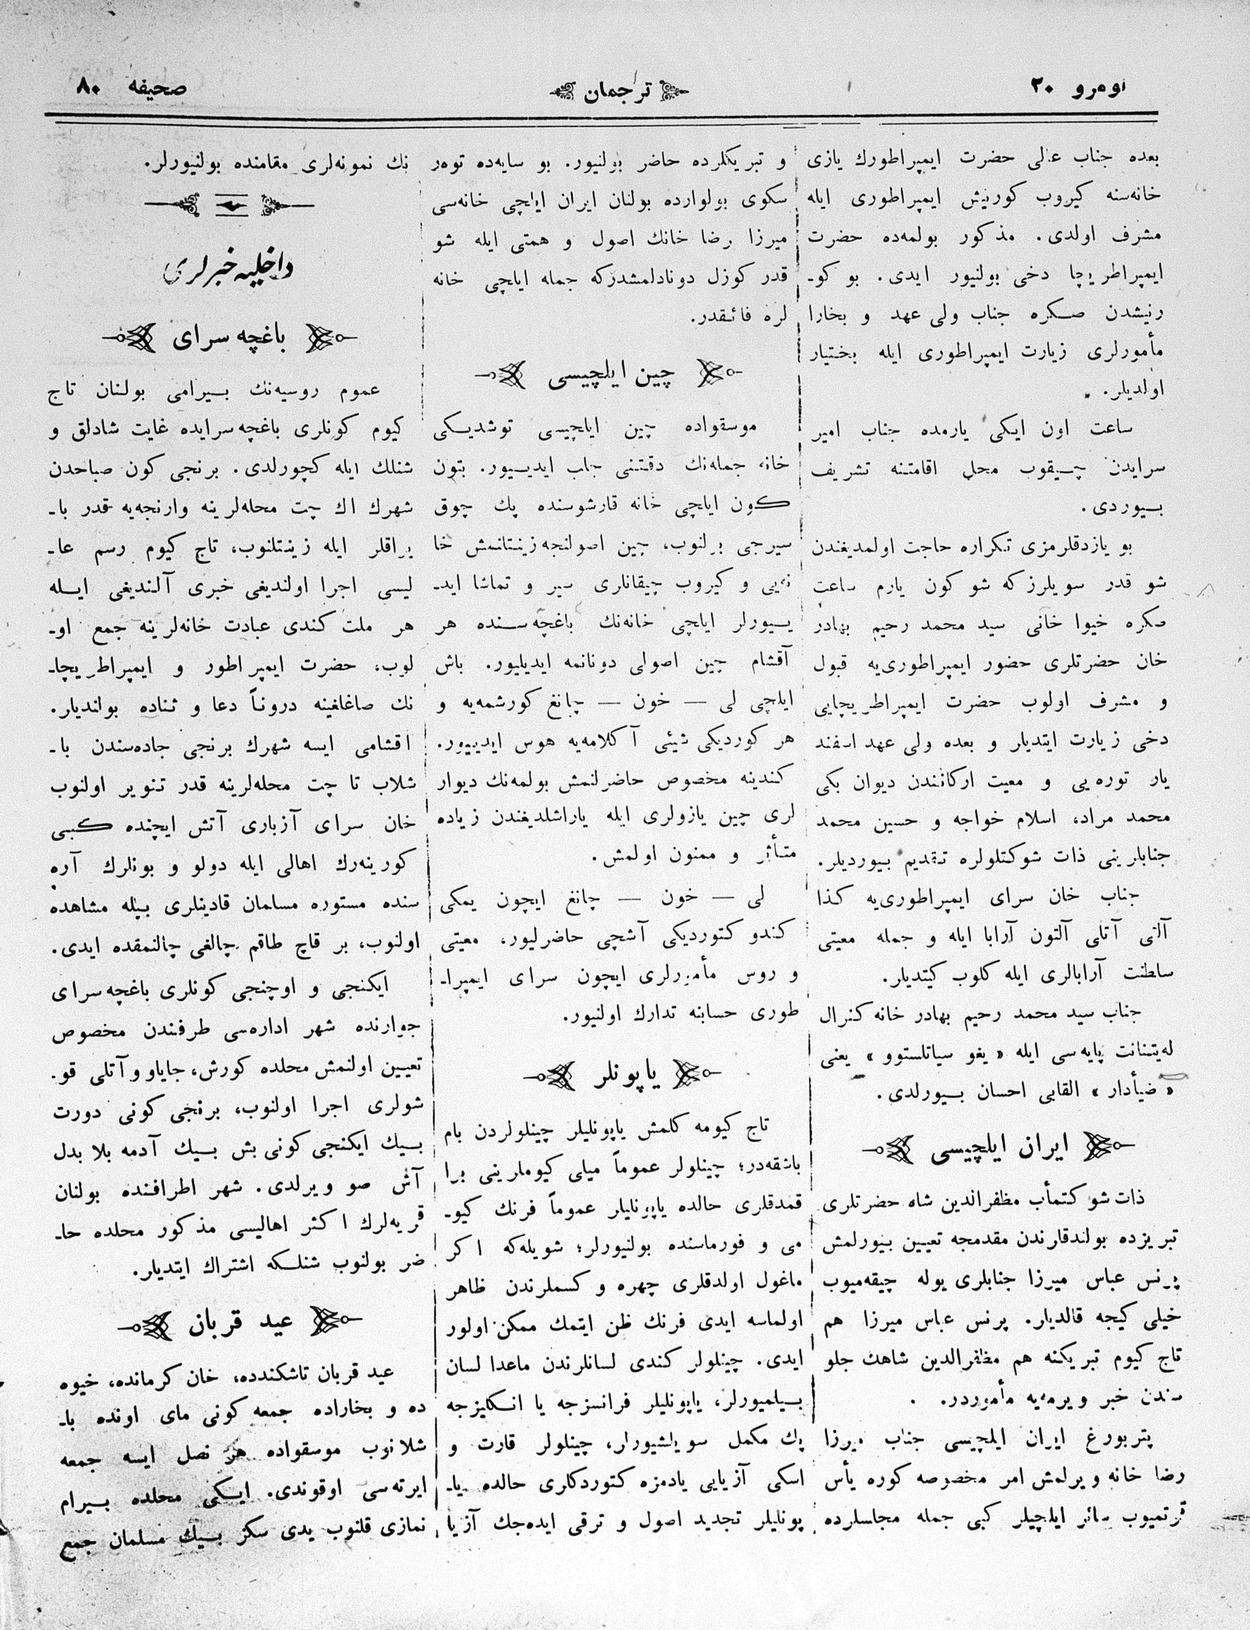 نومرو ۲۰
ترجمان
صحیفه ۸۰
بعده جناب عالی حضرت ایمپراطورك یازی
خانه‌سنه کیروب کوریش ایمپراطوری ایله
مشرف اولدی. مذکور بولمه‌ده حضرت
ایمپراطریچا دخی بولنیور ایدی. بو کو-
رنیشدن صکره جناب ولی عهد و بخارا
مأمورلری زیارت ایمپراطوری ایله بختیار
اولدیلر.
ساعت اون ایکی یارمده جناب امیر
سرایدن چیقوب محل اقامتنه تشریف
بیوردی.
بو یازدقلرمزی تکراره حاجت اولمدیغندن
شو قدر سویلرزکه شو کون یارم ساعت
صکره خیوا خانی سید محمد رحیم بهادر
خان حضرتلری حضور ایمپراطوری‌یه قبول
و مشرف اولوب حضرت ایمپراطریچایی
دخی زیارت ایتدیلر و بعده ولی عهد اسفند
یار توره‌یی و معیت ارکانندن دیوان بکی
محمد مراد، اسلام خواجه و حسین محمد
جنابلرینی ذات شوکتلولره تقدیم بیوردیلر.
جناب خان سرای ایمپراطوری‌یه کذا
آلتی آتلی آلتون آرابا ایله و جمله معیتی
سلطنت آرابالری ایله کلوب کیتدیلر.
جناب سید محمد رحیم بهادر خانه کنرال
له‌یتنانت پایه‌سی ایله « یغو سیاتلستوو » یعنی
« ضیأدار » القابی احسان بیورلدی.
ایران ایلچیسی
ذات شوکتمأب مظفرالدین شاه حضرتلری
تبریزده بولندقلرندن مقدمجه تعیین بیورلمش
پرنس عباس میرزا جنابلری یوله چیقه‌میوب
خیلی کیجه قالدیلر. پرنس عباس میرزا هم
تاج کیوم تبریکنه هم مظفرالدین شاهك جلو
سندن خبر ویرمه‌یه مأموردر.
پتربورغ ایران ایلچیسی جناب میرزا
رضا خانه ویرلمش امر مخصوصه کوره یأس
ترتمیوب سائر ایلچیلر کبی جمله مجلسلرده
و تبریکلرده حاضر بولنیور. بو سایه‌ده توەر
سکوی بولوارده بولنان ایران ایلچی خانه‌سی
میرزا رضا خانك اصول و همتی ایله شو
قدر کوزل دونادلمشدرکه جمله ایلچی خانه
لره فائقدر.
چین ایلچیسی
موسقواده چین ایلچیسی توشدیکی
خانه جمله‌نك دقتنی جلب ایدییور. بتون
کون ایلچی خانه قارشوسنده پك چوق
سیرجی برلنوب، چین اصولنجه زینتلنمش خا
نه‌یی و کیروب چیقانلری سیر و تماشا اید-
ییورلر ایلچی خانه‌نك باغچه‌سنده هر
آقشام چین اصولی دونانمه ایدیلیور. باش
ایلچی لی — خون — چانغ کورشمه‌یه و
هر کوردیکی شیئی آکلامه‌یه هوس ایدییور.
کندینه مخصوص حاضرلنمش بولمه‌نك دیوار
لری چین یازولری ایله یاراشلدیغندن زیاده
متأثر و ممنون اولمش.
لی — خون — چانغ ایچون یمکی
کندو کتوردیکی آشچی حاضرلیور، معیتی
و روس مأمورلری ایچون سرای ایمپرا-
طوری حسابنه تدارك اولنیور.
یاپونلر
تاج کیومه کلمش یاپونلیلر چینلولردن بام
باشقه‌در؛ چینلولر عموماً میلی کیوملرینی برا
قمدقلری حالده یاپونلیلر عموماً فرنك کیو-
می و فورماسنده بولنیورلر؛ شویله‌که اکر
ماغول اولدقلری چهره و کسملرندن ظاهر
اولماسه ایدی فرنك ظن ایتمك ممکن اولور
ایدی. چینلولر کندی لسانلرندن ماعدا لسان
بیلمیورلر، یاپونلیلر فرانسزجه یا انکلیزجه
پك مکمل سویلشیورلر، چینلولر قارت و
اسکی آزیایی یادمزه کتوردکلری حالده یا-
پونلیلر تجدید اصول و ترقی ایده‌جك آزیا
نك نمونه‌لری مقامنده بولنیورلر.
داخلیه خبرلری
باغچه سرای
عموم روسیه‌نك بیرامی بولنان تاج
کیوم کونلری باغچه‌سرایده غایت شادلق و
شنلك ایله کچورلدی. برنجی کون صباحدن
شهرك اك چت محله‌لرینه وارنجه‌یه قدر با-
یراقلر ایله زینتلنوب، تاج کیوم رسم عا-
لیسی اجرا اولندیغی خبری آلندیغی ایله
هر ملت کندی عبادت خانه‌لرینه جمع او-
لوب، حضرت ایمپراطور و ایمپراطریچا-
نك صاغلغینه دروناً دعا و ثناده بولندیلر.
اقشامی ایسه شهرك برنجی جاده‌سندن با-
شلاب تا چت محله‌لرینه قدر تنویر اولنوب
خان سرای آزباری آتش ایچنده کبی
کورینه‌رك اهالی ایله دولو و بونلرك آره
سنده مستوره مسلمان قادینلری بیله مشاهده
اولنوب، بر قاچ طاقم چالغی چالنمقده ایدی.
ایکنجی و اوچنجی کونلری باغچه‌سرای
جوارنده شهر اداره‌سی طرفندن مخصوص
تعیین اولنمش محلده کورش، جایاو و آتلی قو.
شولری اجرا اولنوب، برنجی کونی دورت
بیك ایکنجی کونی بش بیك آدمه بلا بدل
آش صو ویرلدی. شهر اطرافنده بولنان
قریه‌لرك اکثر اهالیسی مذکور محلده حا-
ضر بولنوب شنلکه اشتراك ایتدیلر.
عید قربان
عید قربان تاشکندده، خان کرمانده، خیوه
ده و بخاراده جمعه کونی مای اونده با-
شلانوب موسقواده هر نصل ایسه جمعه
ایرته‌سی اوقوندی. ایکی محلده بیرام
نمازی قلنوب یدی سکز بیك مسلمان جمع